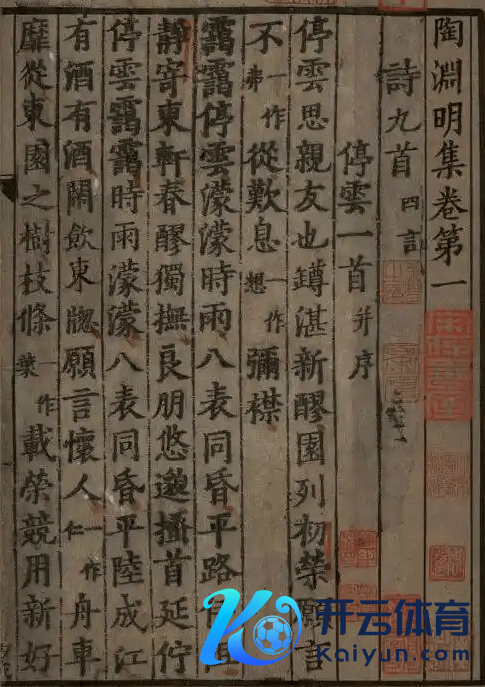 陶淵明集卷第一
詩九首 四言
停雲一首 并序
停雲思親友也罇湛新醪園列初榮願言
不 一作弗 從歎息 一作想 彌襟
靄靄停雲濛濛時雨八表同昏平路伊阻
靜寄東軒春醪獨撫良朋悠邈搔首延佇
停雲靄靄時雨濛濛八表同昏平陸成江
有酒有酒閑飲東牕願言懷人 一作仁 舟車
靡從東園之樹枝條 一作葉 載榮競用新好
开云体育
Kaiyun.com